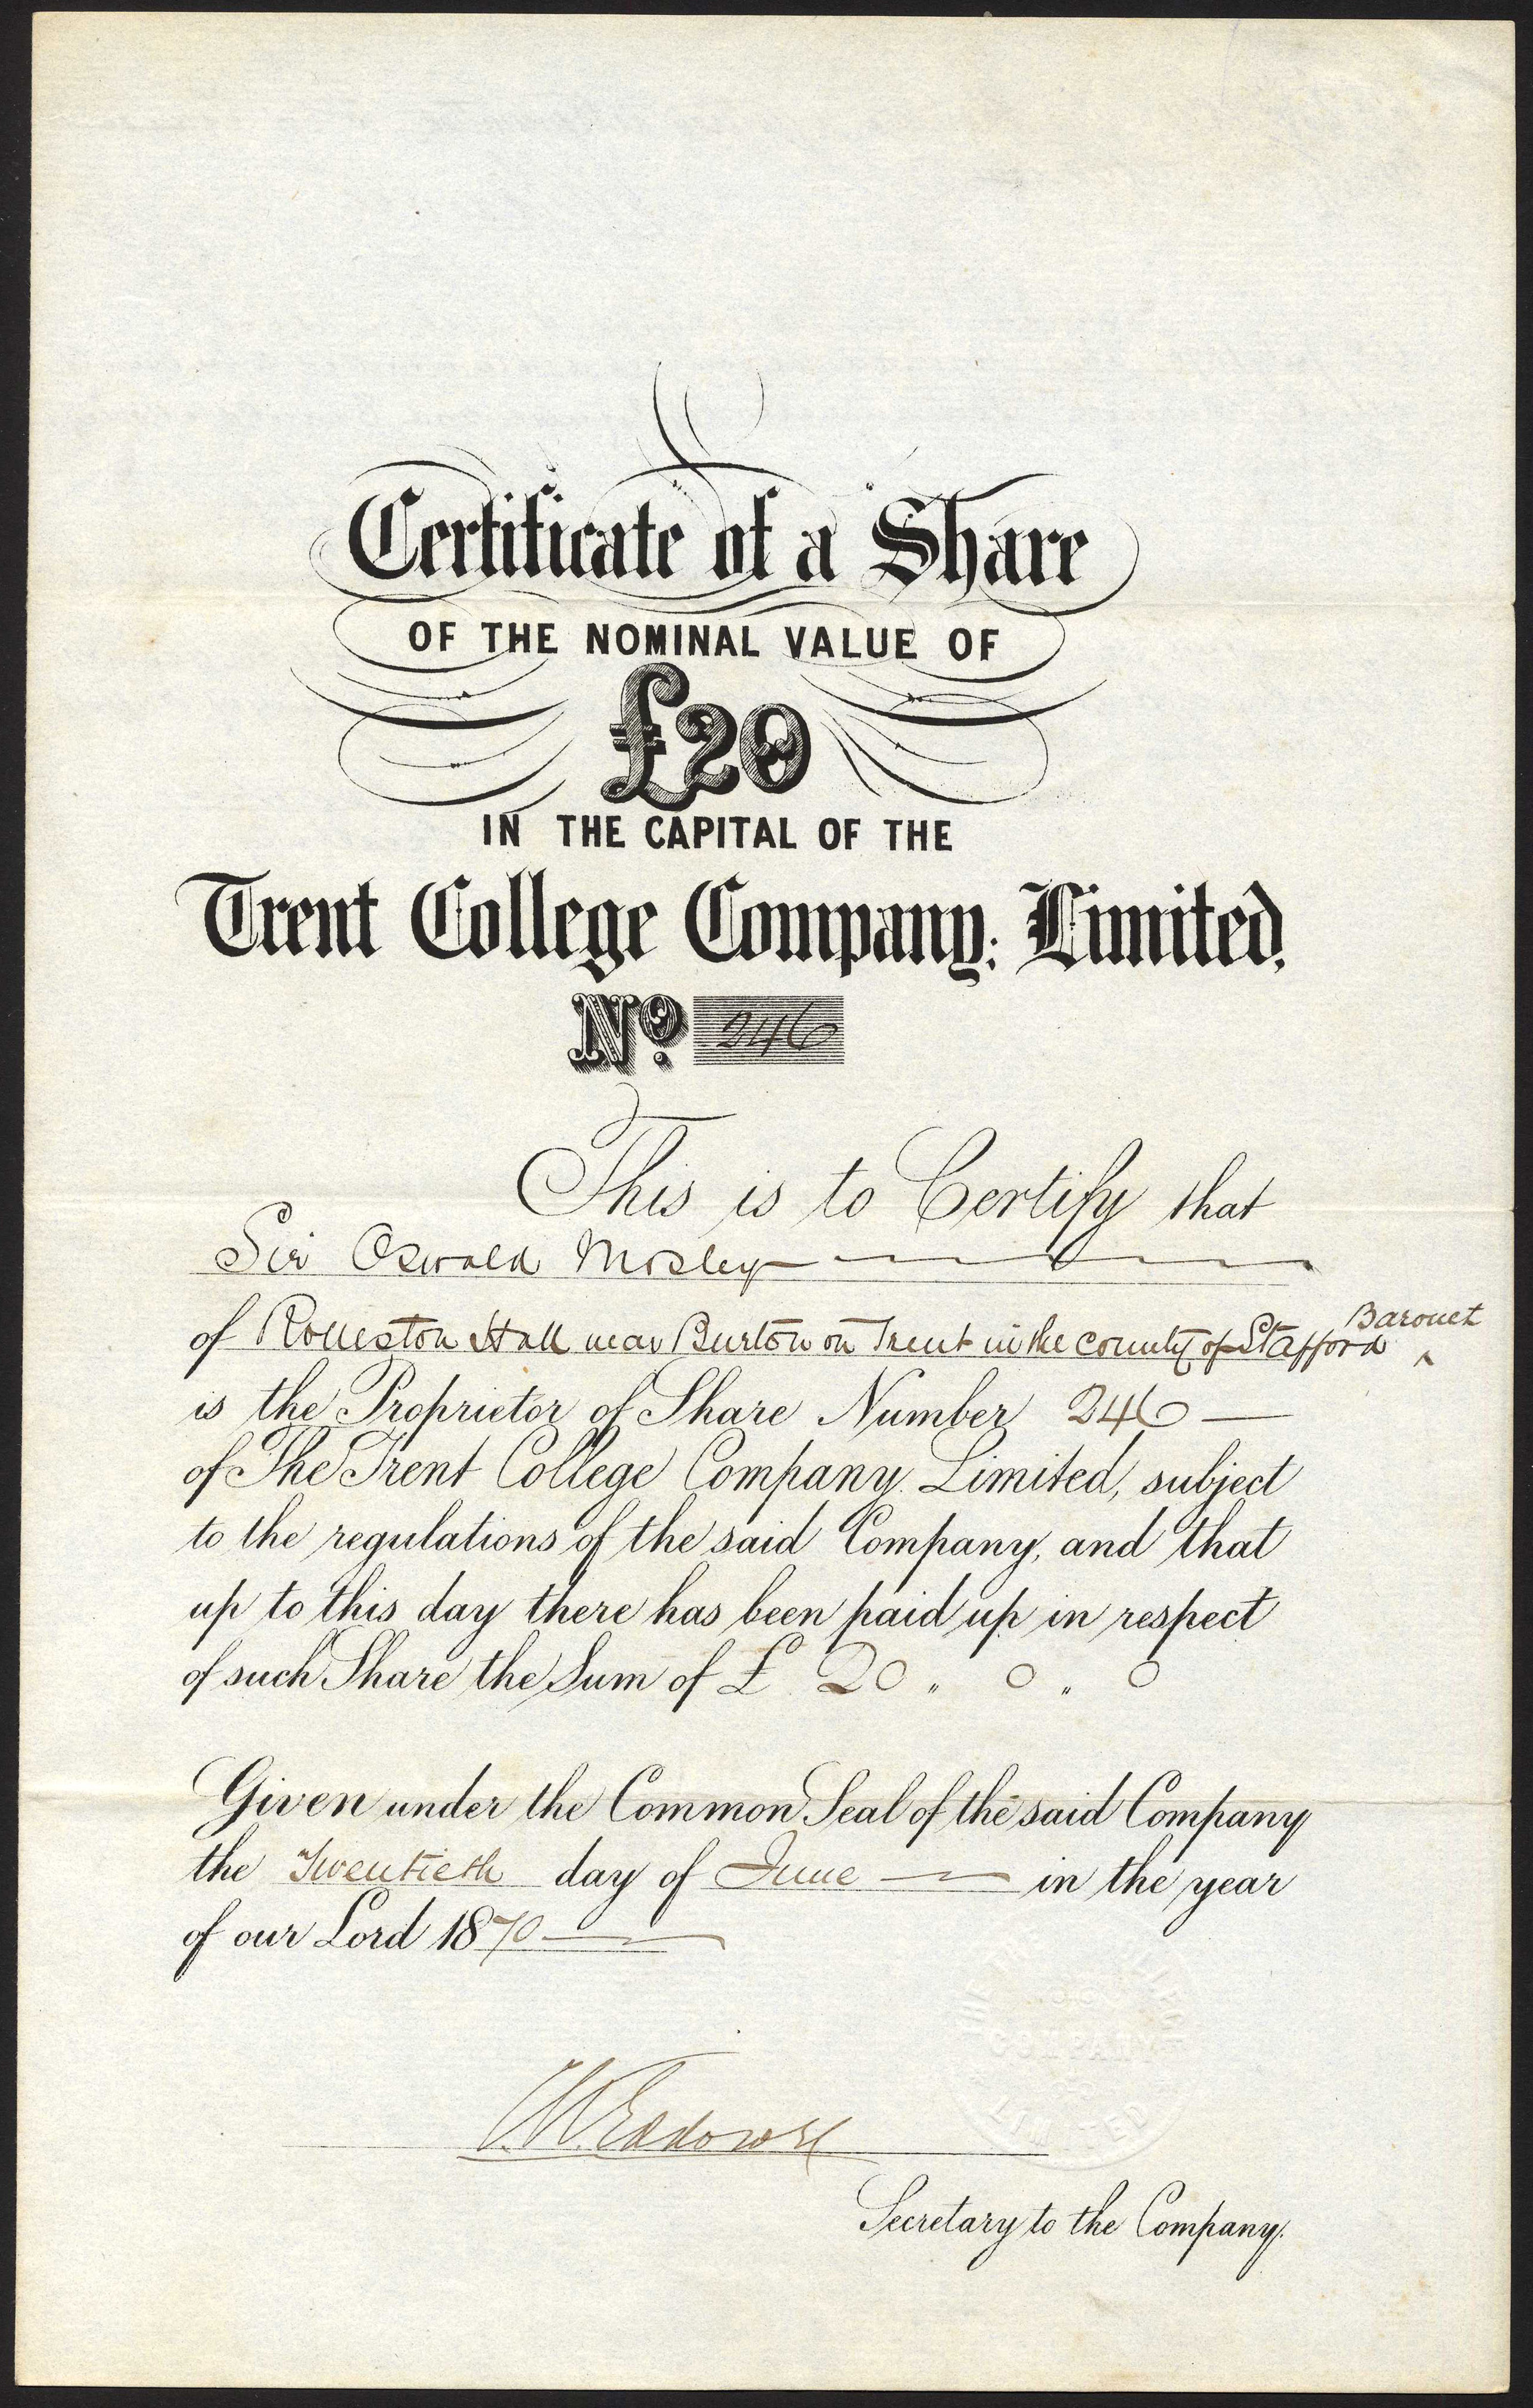 Certificate of a Share
OF THE NOMINAL VALUE OF
£20
IN THE CAPITAL OF THE
Trent College Company, Limited.
No. 246
This is to Certify that
Sir Oswald Mosley
of Rolleston Hall near Burton on Trent in the county of Stafford ^ Baronet
is the Proprietor of Share Number 246
of The Trent College Company Limited, subject
to the regulations of the said Company, and that
up to this day there has been paid up in respect
of such Share the Sum of £ 20 „ 0 „ 0
Given under the Common Seal of the said Company
the Twentieth day of June in the year
of our Lord 1870
COMPANY
LIMITED
Secretary to the Company.